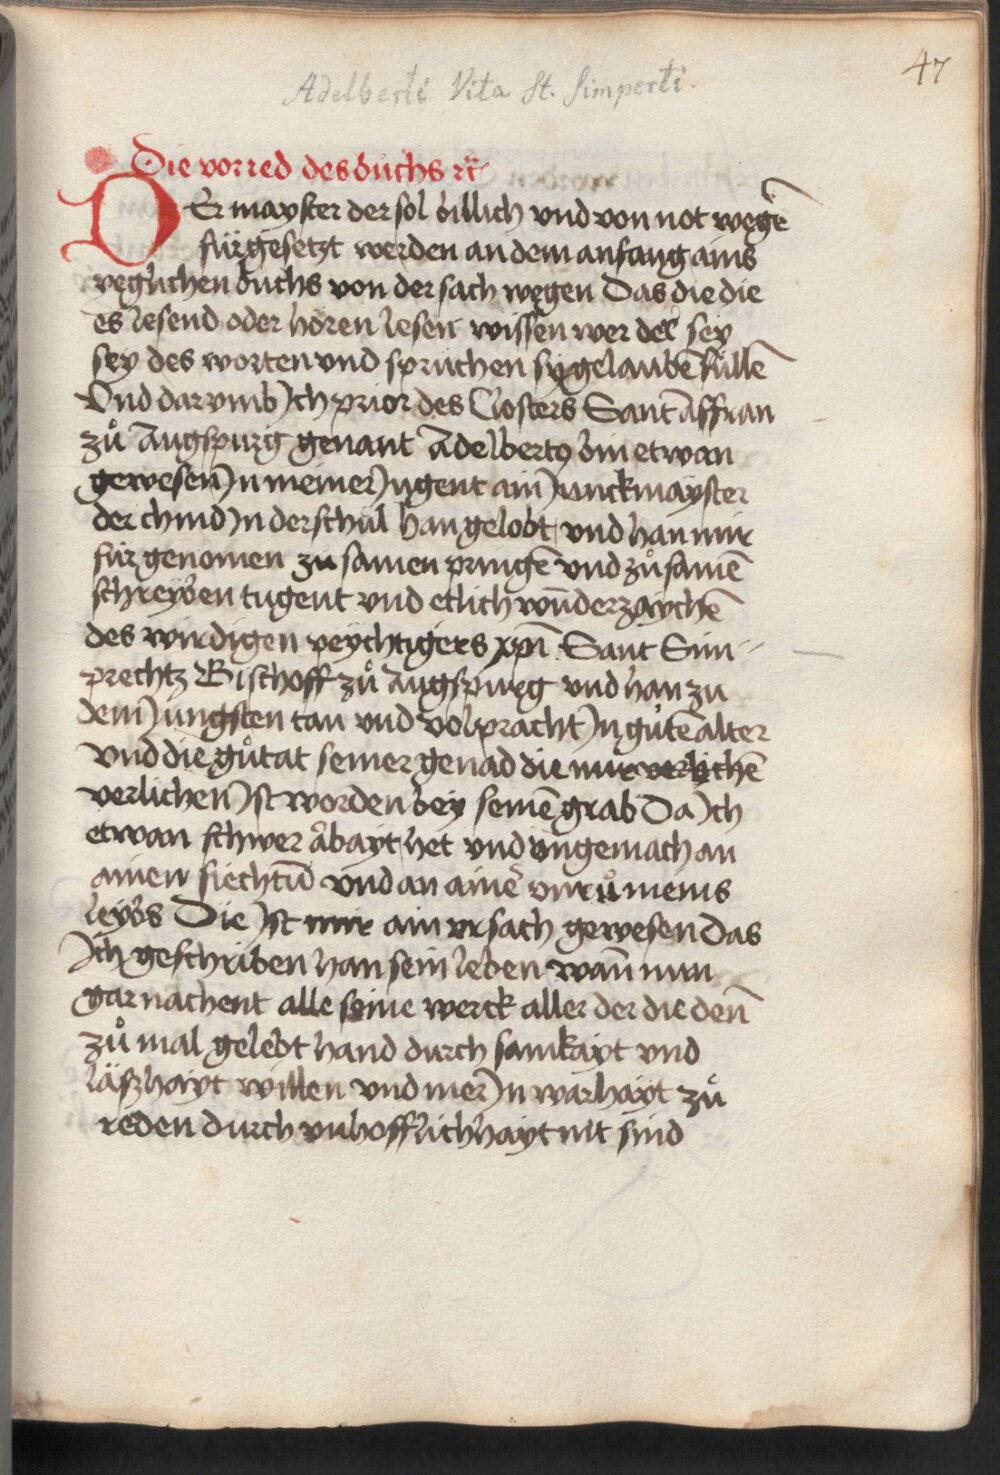 Adelberti Vita St. Simperti.
47
Die vorred des buchs rc̈
DEr mayster der sol billich vnd von not wegē
fürgesetzt werden an dem anfang ains
yeglichen buchs von der sach wegen Das die die
es lesend oder hören lesen wissen wer der sey
sey des worten vnd sprüchen sy gelauben süllē
Vnd darvmb Ich prior des Closters Sant Affran
zů Augspurg genant Adelbertꝰ bin etwan
gewesen In meiner Jugent ain Junckmayster
der chind In der schul han gelobt vnd han mir
für genomen zu samen pringē vnd zůsamē
schreyben tugent vnd etlich wūderzaychē
des wirdigen peychtigers xp̄i Sant Sim
prechtz Bischoff zů Augspurg vnd han zu
dem Jungsten tan vnd volpracht In gutē alter
vnd die gůtat seiner genad die mir verlichē
verlichen Ist worden bey seinē grab Da Ich
etwan schwer arbayt het vnd vngemach an
ainen siechtū vnd an ainer vnrů meins
leybs Die Ist mir ain vrsach gewesen Das
Ich geschriben han sein leben wan̄ nun
gar nachent alle seine werck aller der die den̄
zů mal gelebt hand durch samkayt vnd
läszhayt willen vnd mer In warhayt zů
reden durch vnhofflichhayt nit sind